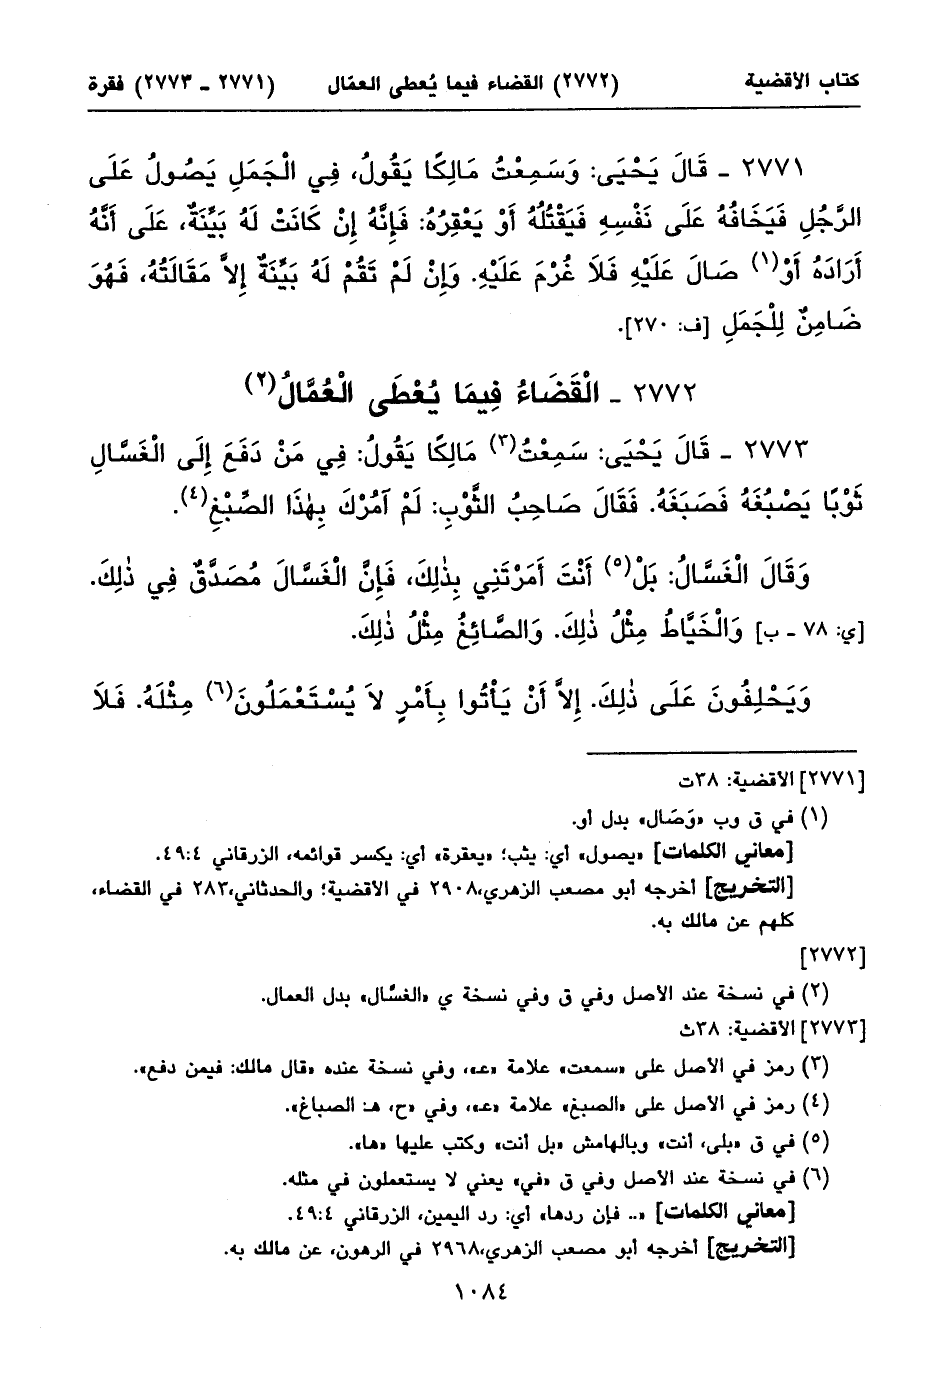 كتاب الأقضية (٢٧٧٢) القضاء فيما يُعطى العمّال (٢٧٧١ ـ ٢٧٧٣) فقرة
٢٧٧١ ـ قَالَ يَحْيَى: وَسَمِعْتُ مَالِكًا يَقُولُ، فِي الْجَمَلِ يَصُولُ عَلَى
الرَّجُلِ فَيَخَافُهُ عَلَى نَفْسِهِ فَيَقْتُلُهُ أَوْ يَعْقِرُهُ: فَإِنَّهُ إِنْ كَانَتْ لَهُ بَيِّنَةٌ، عَلَى أَنَّهُ
أَرَادَهُ أَوْ(١) صَالَ عَلَيْهِ فَلاَ غُرْمَ عَلَيْهِ. وَإِنْ لَمْ تَقُمْ لَهُ بَيِّنَةٌ إِلاَّ مَقَالَتُهُ، فَهُوَ
ضَامِنٌ لِلْجَمَلِ [ف: ٢٧٠].
٢٧٧٢ ـ الْقَضَاءُ فِيمَا يُعْطَى الْعُمَّالُ(٢)
٢٧٧٣ ـ قَالَ يَحْيَى: سَمِعْتُ(٣) مَالِكًا يَقُولُ: فِي مَنْ دَفَعَ إِلَى الْغَسَّالِ
ثَوْبًا يَصْبُغَهُ فَصَبَغَهُ. فَقَالَ صَاحِبُ الثَّوْبِ: لَمْ آمُرْكَ بِهٰذَا الصِّبْغِ(٤).
وَقَالَ الْغَسَّالُ: بَلْ(٥) أَنْتَ أَمَرْتَنِي بِذٰلِكَ، فَإِنَّ الْغَسَّالَ مُصَدَّقٌ فِي ذٰلِكَ.
[ي: ٧٨ ـ ب] وَالْخَيَّاطُ مِثْلُ ذٰلِكَ. وَالصَّائِغُ مِثْلُ ذٰلِكَ.
وَيَحْلِفُونَ عَلَى ذٰلِكَ. إِلاَّ أَنْ يَأْتُوا بِأَمْرٍ لاَ يُسْتَعْمَلُونَ(٦) مِثْلَهُ. فَلاَ
[٢٧٧١] الأقضية: ٣٨ت
(١) في ق وب «وَصَال» بدل أو.
[معاني الكلمات] «يصول» أي: يثب؛ «يعقرة» أي: يكسر قوائمه، الزرقاني ٤٩:٤.
[التخريج] أخرجه أبو مصعب الزهري،٢٩٠٨ في الأقضية؛ والحدثاني،٢٨٣ في القضاء،
كلهم عن مالك به.
[٢٧٧٢]
(٢) في نسخة عند الأصل وفي ق وفي نسخة ي «الغسَّال» بدل العمال.
[٢٧٧٣] الأقضية: ٣٨ث
(٣) رمز في الأصل على «سمعت» علامة «عـ»، وفي نسخة عنده «قال مالك: فيمن دفع».
(٤) رمز في الأصل على «الصبغ» علامة «عـ»، وفي «ح، هـ: الصباغ».
(٥) في ق «بلى، أنت» وبالهامش «بل أنت» وكتب عليها «ها».
(٦) في نسخة عند الأصل وفي ق «في» يعني لا يستعملون في مثله.
[معاني الكلمات] «.. فإن ردها» أي: رد اليمين، الزرقاني ٤٩:٤.
[التخريج] أخرجه أبو مصعب الزهري،٢٩٦٨ في الرهون، عن مالك به.
١٠٨٤